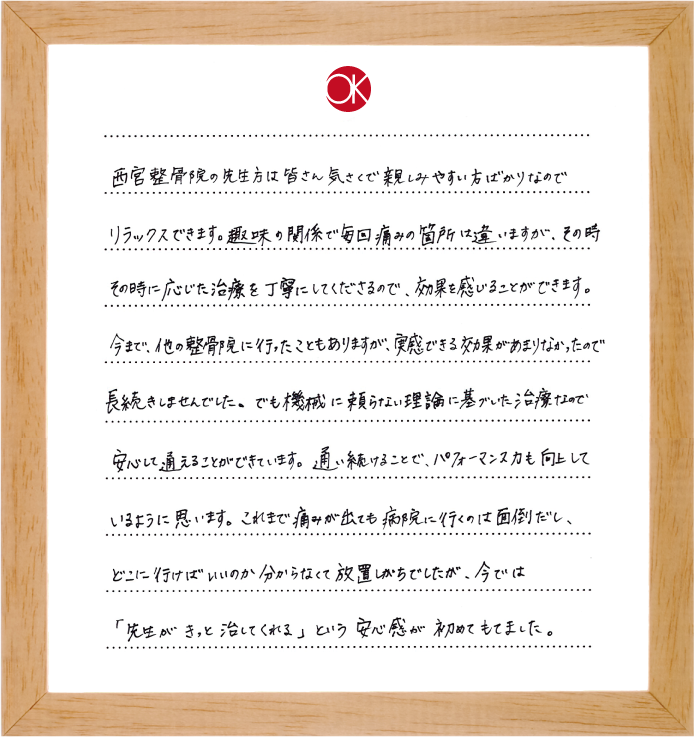 OK
西宮整骨院の先生方は皆さん気さくで親しみやすい方ばかりなので
リラックスできます。趣味の関係で毎回痛みの箇所は違いますが、その時
その時に応じた治療を丁寧にしてくださるので、効果を感じることができます。
今まで、他の整骨院に行ったこともありますが、実感できる効果があまりなかったので
長続きしませんでした。でも機械に頼らない理論に基づいた治療なので
安心して通えることができています。通い続けることで、パフォーマンス力も向上して
いるように思います。これまで痛みが出ても病院に行くのは面倒だし、
どこに行けばいいのか分からなくて放置しがちでしたが、今では
「先生がきっと治してくれる」という安心感が初めてもてました。